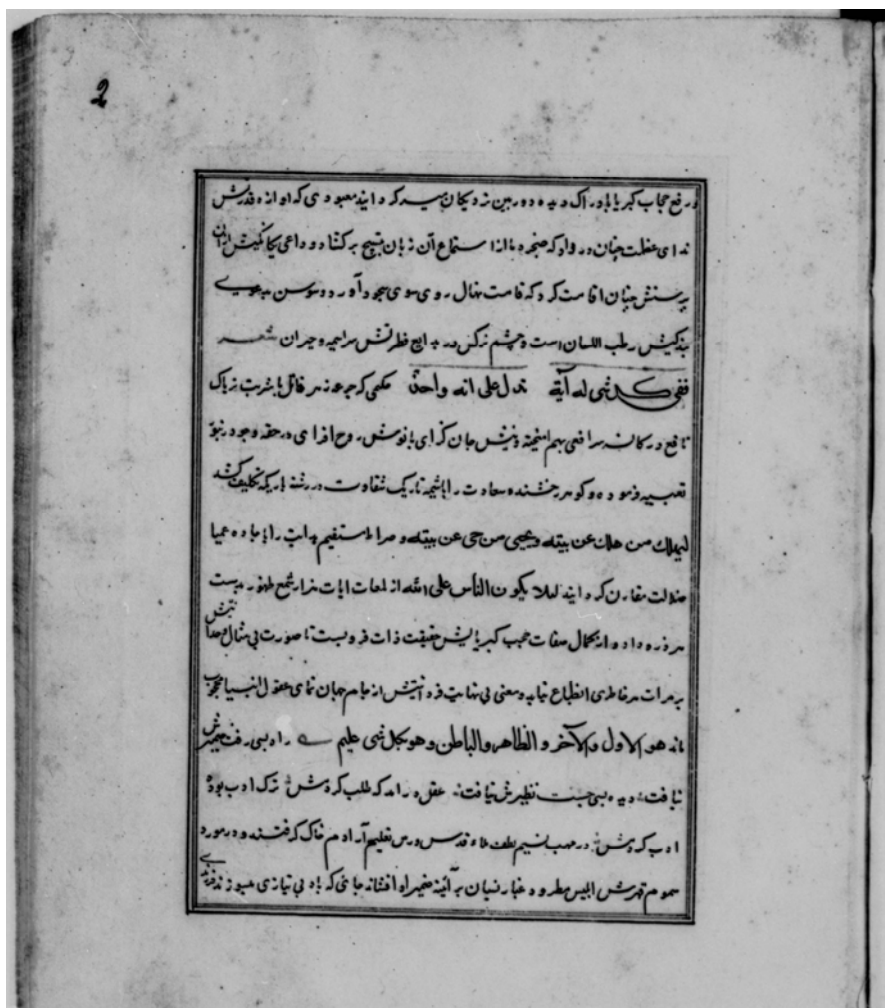 2
و رفع حجاب کبریا با دراک دیده دوربین نزدیکان میسر کرد و ایند معبودی که آوازه قدرتش
ندای عظمت چنان در واد که صخره ما از استماع آن زبان بتسبیح برکشاد و داعی یکانکیش
پرستش چنان اقامت کرد که قامت نهال روی سوی سجود آورد و سوسن
بندکیش رطب اللسان است و چشم نرکس در بدایع فطرتش سراسیمه و حیران شعر
ففی کل شی له آیة تدل علی انه واحد حکیمی که جرعه زهر قاتل با شربت تریاک
نافع در کاسه بهم آمیخته و نیش جان کزای با نوش روح افزای در حقه وجود زنبور
تعبیه فرموده و کوهر رخشنده سعادت را با شبه تاریک شقاوت در رشته باریک تکلیف کشد
لیهلک من هلک عن بینه ویحیی من حی عن بینه و صراط مستقیم هدایت را با باده عمیا
ضلالت مقارن کرد ایند لیلا یکون الناس علی الله از لمعات ایات هزار شمع ظهور بدست
هر ذره داد و از کمال صفات حجب کبریایش حقیقت ذات فرو بست تا صورت بی مثال
بر مرات هر خاطری انطباع نیابد و معنی بی نهایت فردانیتش از جام جهان نمای عقول انبیا محجوب
ماند هو الاول والآخر و الظاهر والباطن وهو بکل شی علیم راه بسی رفت ضمیرش
نیافت دیده بسی جست نظیرش نیافت عقل در امد که طلب کردمش ترک ادب بود
ادب کردمش در مهب نسیم لطف قدس درس تعلیم آرا دم خاک کرفتند و در مورد
سموم قهرش ابلیس مطرود غبار نسیان بر آئینه ضمیر او افشاند جائی که باد بی نیازی